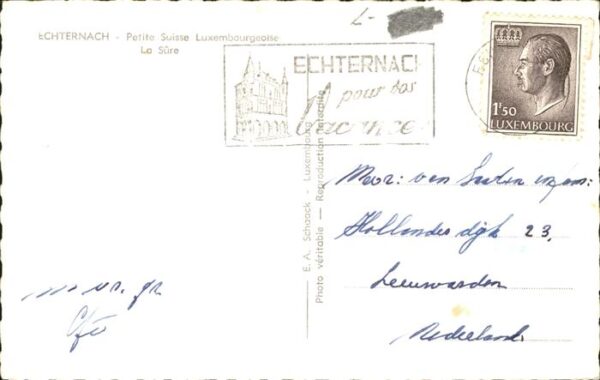 ECHTERNACH - Petite Suisse Luxembourgeoise
La Sûre
ECHTERNACH
pour vos
Vacances
1F50
LUXEMBOURG
E. A. Schaack - Luxembourg
Photo véritable — Reproduction interdite
van
Hollander dijk 23,
Leeuwarden
Nederland
m. vr. gr.